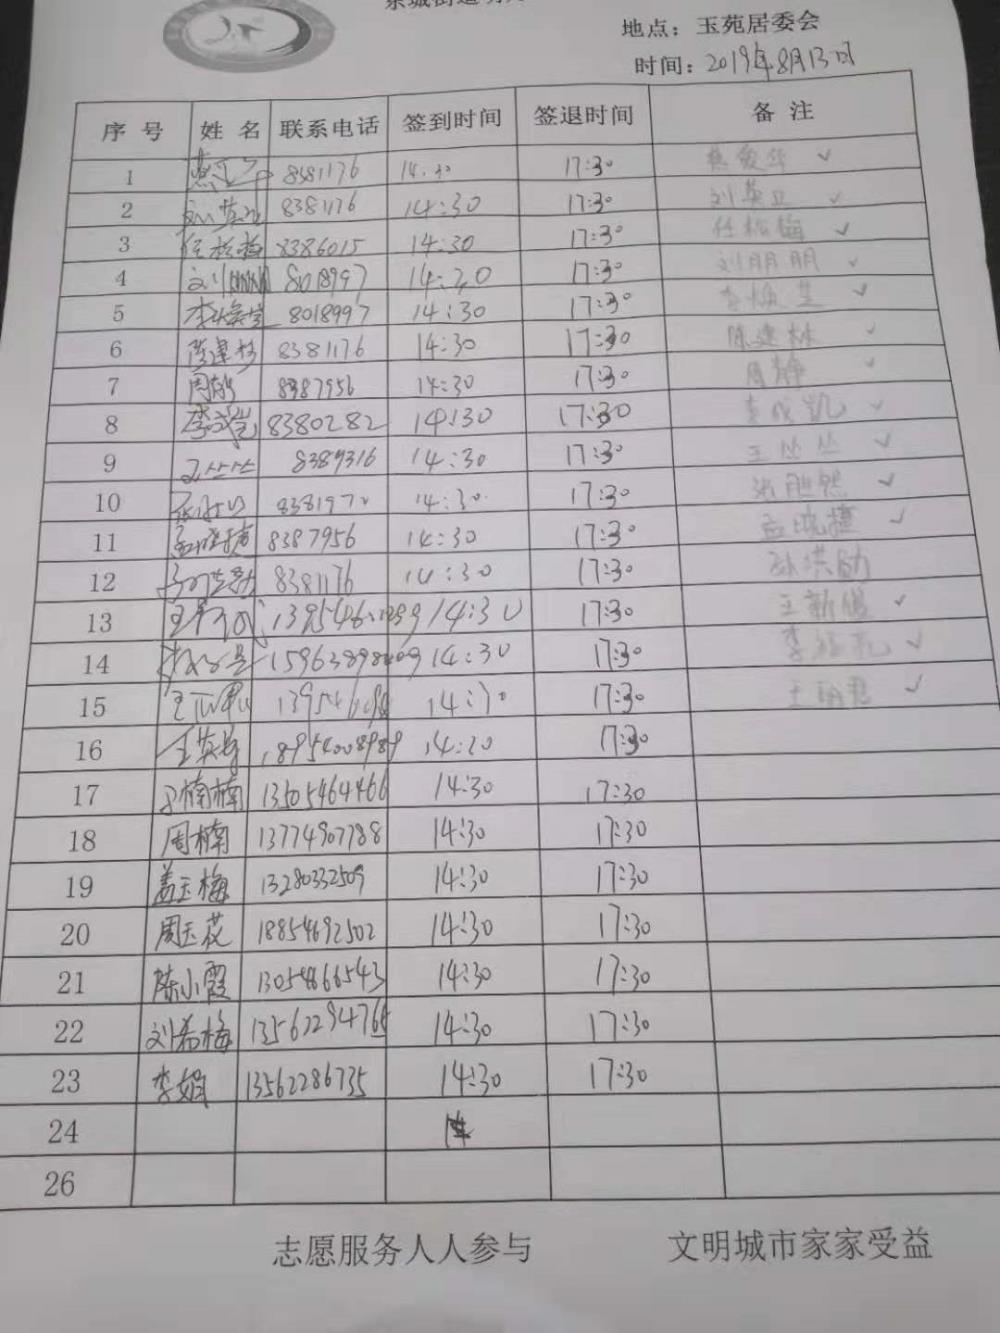 地点：玉苑居委会
时间：2019年8月13日
序号 姓名 联系电话 签到时间 签退时间 备注
1 8381176 14:30 17:30 燕爱华 ✓
2 刘英卫 8381176 14:30 17:30 刘英卫 ✓
3 任松梅 8386015 14:30 17:30 任松梅 ✓
4 刘朋朋 8018997 14:30 17:30 刘朋朋 ✓
5 李焕芝 8018997 14:30 17:30 李焕芝 ✓
6 陈建林 8381176 14:30 17:30 陈建林 ✓
7 周静 8387956 14:30 17:30 周静 ✓
8 李成凯 8380282 14:30 17:30 李成凯 ✓
9 王丛丛 8389316 14:30 17:30 王丛丛 ✓
10 838197 14:30 17:30 ✓
11 孟晓捷 8387956 14:30 17:30 孟晓捷 ✓
12 8381176 14:30 17:30 孙洪勋
13 14:30 17:30 ✓
14 14:30 17:30 ✓
15 14:30 17:30 ✓
16 王英 18954008989 14:20 17:30
17 楠楠 13505464466 14:30 17:30
18 周楠 13774907788 14:30 17:30
19 盖玉梅 13280332509 14:30 17:30
20 周玉花 18854692502 14:30 17:30
21 陈小霞 13054666543 14:30 17:30
22 刘希梅 13562294764 14:30 17:30
23 李娟 13562286735 14:30 17:30
24
26
志愿服务人人参与 文明城市家家受益